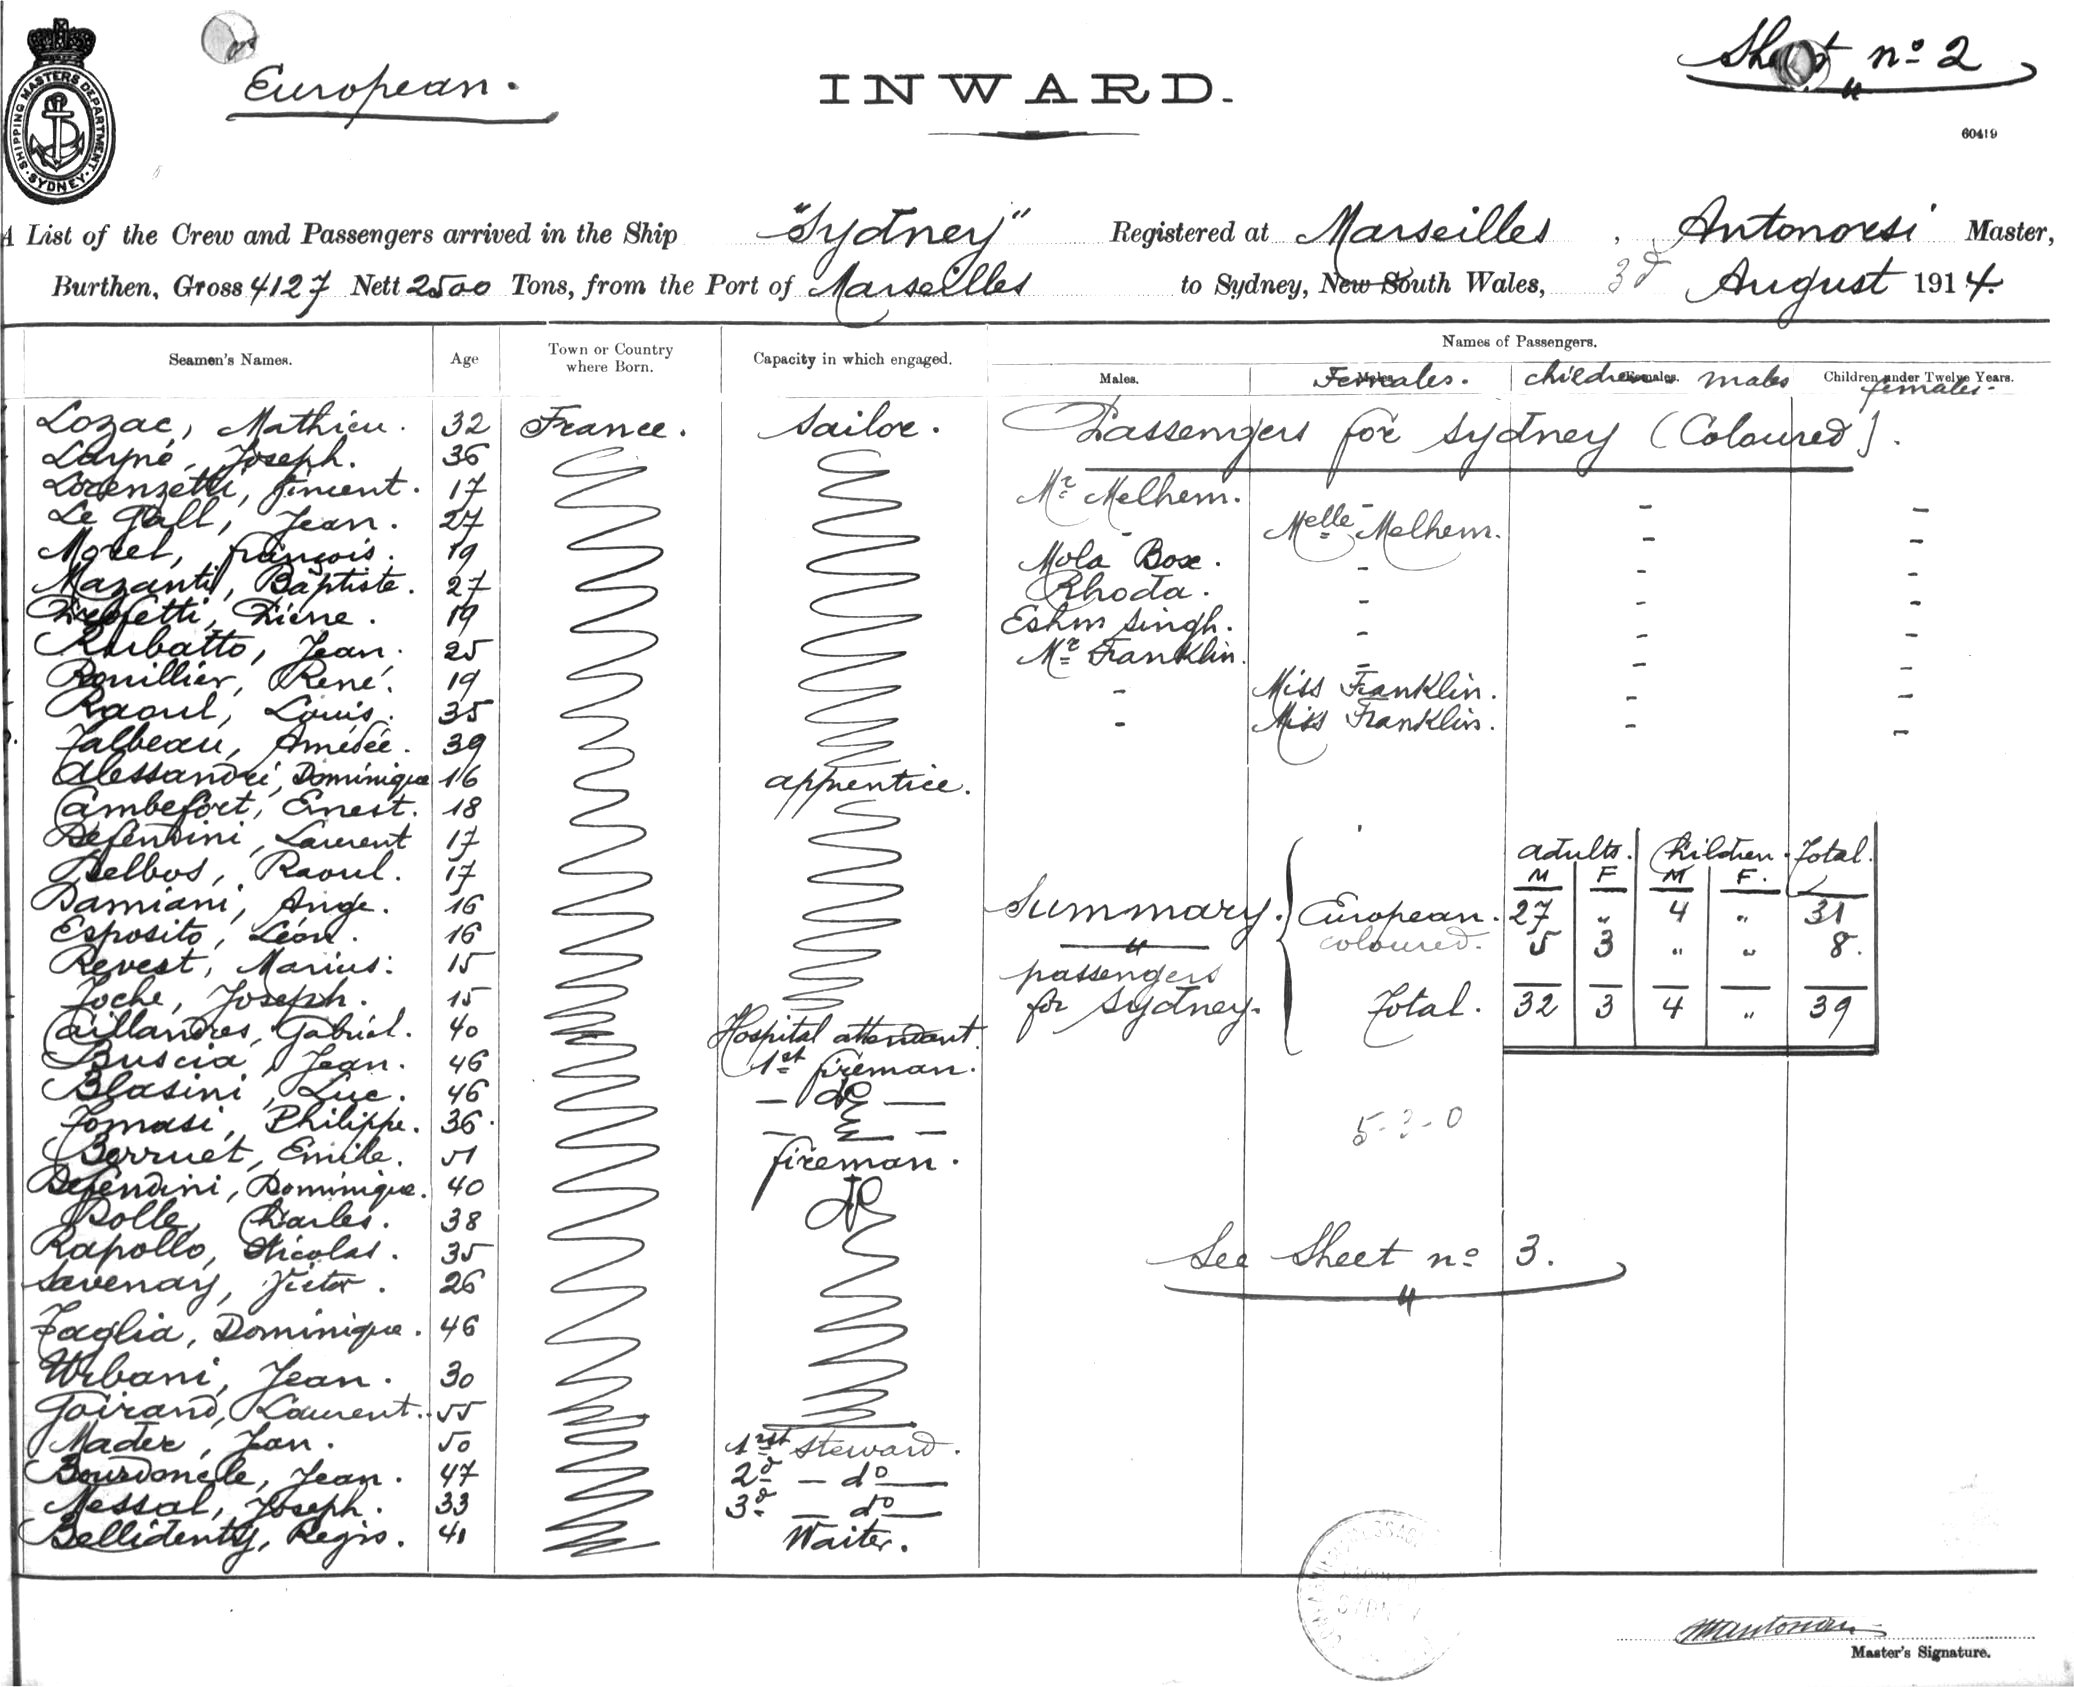 European.
INWARD.
Sheet nº 2
60419
SHIPPING MASTERS DEPARTMENT. SYDNEY.
A List of the Crew and Passengers arrived in the Ship "Sydney" Registered at Marseilles, Antonorsi Master,
Burthen, Gross 4127 Nett 2500 Tons, from the Port of Marseilles to Sydney, New South Wales, 3d August 1914.
Seamen's Names. Age Town or Country where Born. Capacity in which engaged. Names of Passengers.
Males. Females. children males Children under Twelve Years. females.
Lozac, Mathieu. 32 France. Sailor. Passengers for Sydney (Coloured).
Layné, Joseph. 36
Lorenzetti, Vincent. 17 Mr Melhem. - - -
Le Gall, Jean. 27 - Melle Melhem. - -
Morel, François. 19 Mola Box. - - -
Mazanti, Baptiste. 27 Rhoda. - - -
19 Eshm Singh. - - -
Rurbatto, Jean. 25 Mr Franklin. - - -
Rouillier, René. 19 - Miss Franklin. - -
Raoul, Louis. 35 - Miss Franklin. - -
Talbeau, Amédée. 39
Alessandri, Dominique 16 apprentice.
Cambefort, Ernest. 18
Defendini, Laurent 17 adults. Children. Total.
Delbos, Raoul. 17 M F M F.
Damiani, Ange. 16 Summary. European. 27 " 4 " 31
Esposito, Léon. 16 coloured. 5 3 " " 8.
Revest, Marius. 15 passengers
Toche, Joseph. 15 for Sydney. Total. 32 3 4 " 39
Caillandres, Gabriel. 40 Hospital attendant.
Buscia, Jean. 46 1st fireman.
Blasini, Luc. 46 — do —
Tomasi, Philippe. 36. — —
Berruet, Emile. 51 fireman.
Defendini, Dominique. 40 do
Rolle, Charles. 38
Rapollo, Nicolas. 35 See Sheet nº 3.
Savenay, Victor. 26
Taglia, Dominique. 46
Urbani, Jean. 30
Goirand, Laurent. 55
Mader, Jean. 50 1rst Steward.
Bourdonele, Jean. 47 2d — do —
Nessal, Joseph. 33 3d — do —
Bellidenty, Regis. 41 Waiter.
Master's Signature.